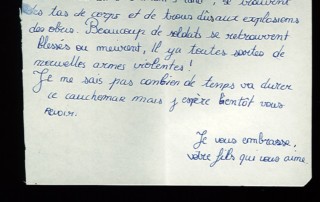 tas de corps et de trous d'aux explosions
des obus. Beaucoup de soldats se retrouvent
blessés ou meurent, Il ya toutes sortes de
nouvelles armes violentes !
Je ne sais pas conbien de temps va durer
ce cauchemar mais j'espère bientôt vous
revoir.
Je vous embrasse,
votre fils qui vous aime